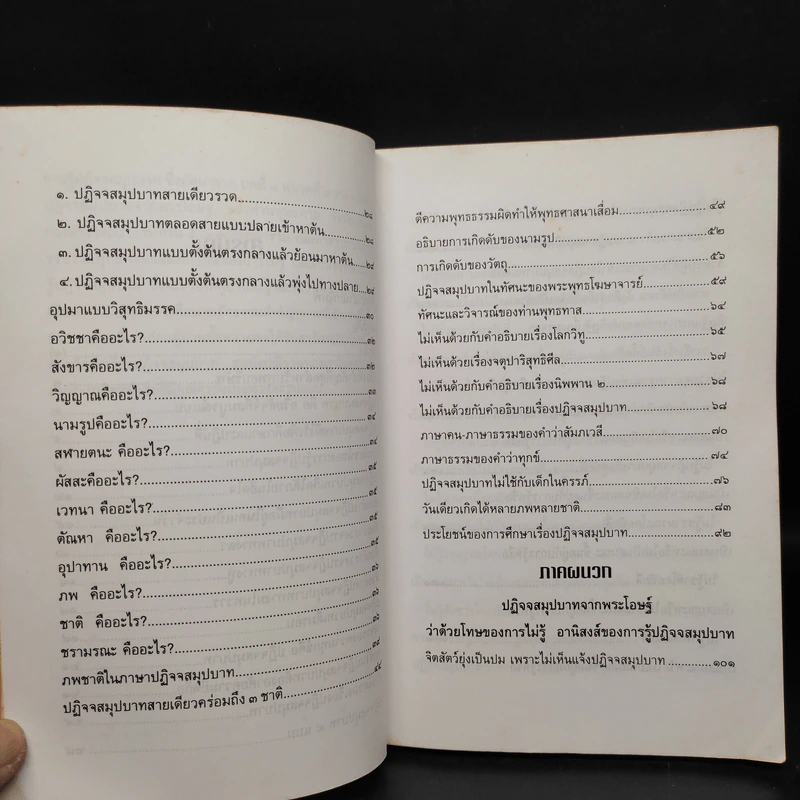 ๑. ปฏิจจสมุปบาทสายเดียวรวด ๒๘
๒. ปฏิจจสมุปบาทตลอดสายแบบปลายเข้าหาต้น ๒๘
๓. ปฏิจจสมุปบาทแบบตั้งต้นตรงกลางแล้วย้อนมาหาต้น ๒๙
๔. ปฏิจจสมุปบาทแบบตั้งต้นตรงกลางแล้วพุ่งไปทางปลาย ๒๙
อุปมาแบบวิสุทธิมรรค ๓๐
อวิชชาคืออะไร? ๓๒
สังขารคืออะไร? ๓๒
วิญญาณคืออะไร? ๓๓
นามรูปคืออะไร? ๓๔
สฬายตนะ คืออะไร? ๓๔
ผัสสะคืออะไร? ๓๕
เวทนา คืออะไร? ๓๕
ตัณหา คืออะไร? ๓๕
อุปาทาน คืออะไร? ๓๕
ภพ คืออะไร? ๓๖
ชาติ คืออะไร? ๓๖
ชรามรณะ คืออะไร? ๓๘
ภพชาติในภาษาปฏิจจสมุปบาท ๓๙
ปฏิจจสมุปบาทสายเดียวคร่อมถึง ๓ ชาติ ๔๔
ตีความพุทธธรรมผิดทำให้พุทธศาสนาเสื่อม ๔๙
อธิบายการเกิดดับของนามรูป ๕๒
การเกิดดับของวัตถุ ๕๖
ปฏิจจสมุปบาทในทัศนะของพระพุทธโฆษาจารย์ ๕๙
ทัศนะและวิจารณ์ของท่านพุทธทาส ๖๔
ไม่เห็นด้วยกับคำอธิบายเรื่องโลกวิทู ๖๕
ไม่เห็นด้วยเรื่องจตุปาริสุทธิศีล ๖๗
ไม่เห็นด้วยกับคำอธิบายเรื่องนิพพาน ๒ ๖๘
ไม่เห็นด้วยกับคำอธิบายเรื่องปฏิจจสมุปบาท ๖๘
ภาษาคน-ภาษาธรรมของคำว่าสัมภเวสี ๗๐
ภาษาธรรมของคำว่าทุกข์ ๗๔
ปฏิจจสมุปบาทไม่ใช้กับเด็กในครรภ์ ๗๖
วันเดียวเกิดได้หลายภพหลายชาติ ๘๓
ประโยชน์ของการศึกษาเรื่องปฏิจจสมุปบาท ๙๒
ภาคผนวก
ปฏิจจสมุปบาทจากพระโอษฐ์
ว่าด้วยโทษของการไม่รู้ อานิสงส์ของการรู้ปฏิจจสมุปบาท
จิตสัตว์ยุ่งเป็นปม เพราะไม่เห็นแจ้งปฏิจจสมุปบาท ๑๐๑